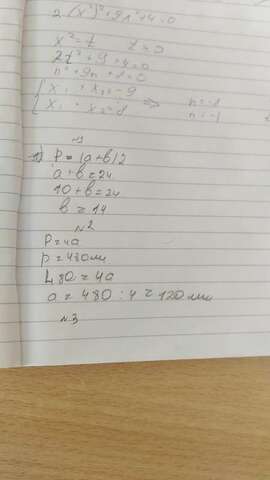 2 (x²)² + 9x² + 4 = 0
x² = t t ≥ 0
2t² + 9 + 4 = 0
n² + 9n + 8 = 0
x₁ + x₂ = -9
x₁ · x₂ = 8 => n = -8
n = -1
№1
1) P = (a+b)2
a + b = 24
10 + b = 24
b = 14
№2
P = 4a
p = 480 мм
480 = 4a
a = 480 : 4 = 120 мм
№3